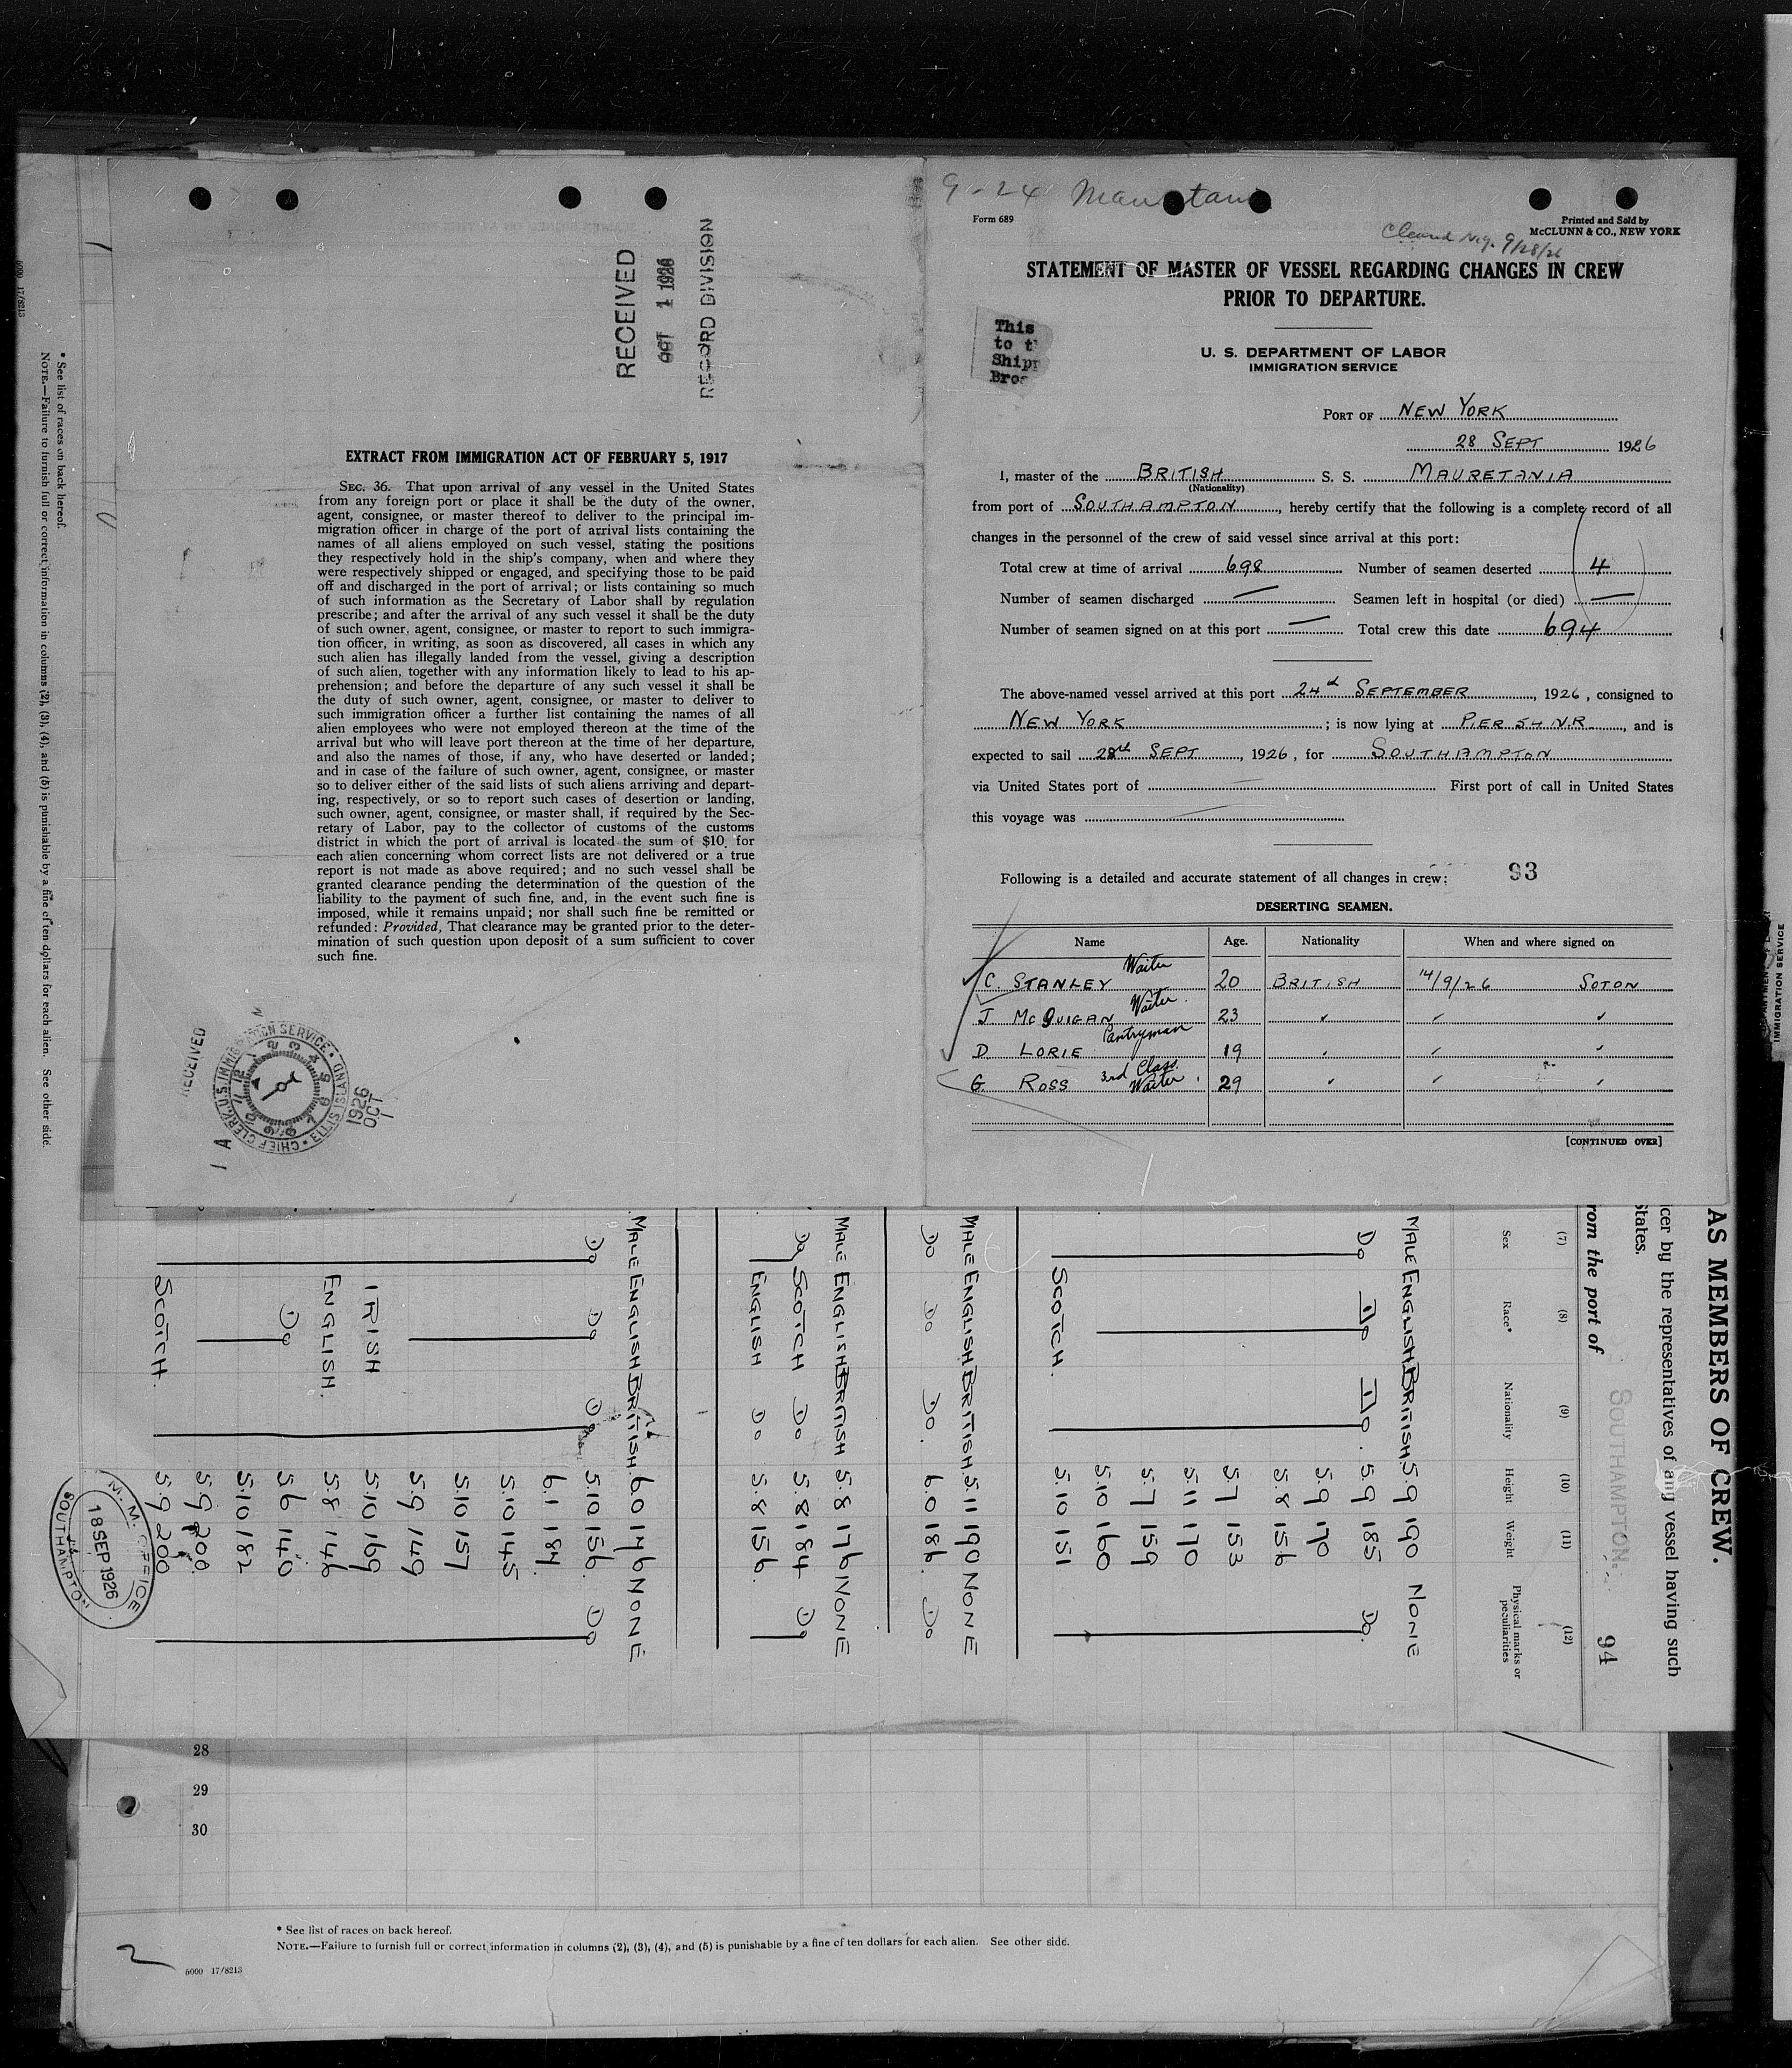 RECEIVED
OCT 1 1926
RECORD DIVISION
EXTRACT FROM IMMIGRATION ACT OF FEBRUARY 5, 1917
SEC. 36. That upon arrival of any vessel in the United States
from any foreign port or place it shall be the duty of the owner,
agent, consignee, or master thereof to deliver to the principal im-
migration officer in charge of the port of arrival lists containing the
names of all aliens employed on such vessel, stating the positions
they respectively hold in the ship's company, when and where they
were respectively shipped or engaged, and specifying those to be paid
off and discharged in the port of arrival; or lists containing so much
of such information as the Secretary of Labor shall by regulation
prescribe; and after the arrival of any such vessel it shall be the duty
of such owner, agent, consignee, or master to report to such immigra-
tion officer, in writing, as soon as discovered, all cases in which any
such alien has illegally landed from the vessel, giving a description
of such alien, together with any information likely to lead to his ap-
prehension; and before the departure of any such vessel it shall be
the duty of such owner, agent, consignee, or master to deliver to
such immigration officer a further list containing the names of all
alien employees who were not employed thereon at the time of the
arrival but who will leave port thereon at the time of her departure,
and also the names of those, if any, who have deserted or landed;
and in case of the failure of such owner, agent, consignee, or master
so to deliver either of the said lists of such aliens arriving and depart-
ing, respectively, or so to report such cases of desertion or landing,
such owner, agent, consignee, or master shall, if required by the Sec-
retary of Labor, pay to the collector of customs of the customs
district in which the port of arrival is located the sum of $10 for
each alien concerning whom correct lists are not delivered or a true
report is not made as above required; and no such vessel shall be
granted clearance pending the determination of the question of the
liability to the payment of such fine, and, in the event such fine is
imposed, while it remains unpaid; nor shall such fine be remitted or
refunded: Provided, That clearance may be granted prior to the deter-
mination of such question upon deposit of a sum sufficient to cover
such fine.
RECEIVED
CHIEF CLERK, U.S. IMMIGRATION SERVICE • ELLIS ISLAND •
1926
OCT
1 A
9-24 Mauretania
Form 689
Printed and Sold by
McCLUNN & CO., NEW YORK
Cleared N.Y. 9/28/26
STATEMENT OF MASTER OF VESSEL REGARDING CHANGES IN CREW
PRIOR TO DEPARTURE.
This
to t
Ship
Bros
U. S. DEPARTMENT OF LABOR
IMMIGRATION SERVICE
PORT OF NEW YORK
28 SEPT 1926
I, master of the BRITISH S. S. MAURETANIA
(Nationality)
from port of SOUTHAMPTON, hereby certify that the following is a complete record of all
changes in the personnel of the crew of said vessel since arrival at this port:
Total crew at time of arrival 698 Number of seamen deserted 4
Number of seamen discharged — Seamen left in hospital (or died) —
Number of seamen signed on at this port — Total crew this date 694
The above-named vessel arrived at this port 24th SEPTEMBER, 1926, consigned to
NEW YORK; is now lying at PIER 54 N.R., and is
expected to sail 28th SEPT, 1926, for SOUTHAMPTON
via United States port of — First port of call in United States
this voyage was
Following is a detailed and accurate statement of all changes in crew: 93
DESERTING SEAMEN.
Name Age. Nationality When and where signed on
C. STANLEY Waiter 20 BRITISH 14/9/26 SOTON
J McGUIGAN Waiter 23 " " "
D LORIE Pantryman 19 " " "
G ROSS 3rd Class Waiter 29 " " "
[CONTINUED OVER]
AS MEMBERS OF CREW.
icer by the representatives of any vessel having such
States.
rom the port of SOUTHAMPTON. 94
(7) (8) (9) (10) (11) (12)
Sex Race* Nationality Height Weight Physical marks or peculiarities
MALE ENGLISH BRITISH 5.9 190 NONE
Do Do Do. 5.9 185 Do.
5.9 170
5.8 156
5.7 153
5.11 170
5.7 159
5.10 160
SCOTCH 5.10 151
MALE ENGLISH BRITISH 5.11 190 NONE
Do Do Do. 6.0 186. Do
MALE ENGLISH BRITISH 5.8 176 NONE
Do SCOTCH Do 5.8 184 Do
ENGLISH Do 5.8 156.
MALE ENGLISH BRITISH. 6.0 146 NONE
Do Do Do 5.10 156. Do
6.1 184.
5.10 145
5.10 157
5.9 149
IRISH 5.10 169
ENGLISH. 5.8 146
Do 5.6 140
5.10 182
5.9 200.
SCOTCH. 5.9 200
M. M. OFFICE
18 SEP 1926
SOUTHAMPTON
* See list of races on back hereof.
NOTE.—Failure to furnish full or correct information in columns (2), (3), (4), and (5) is punishable by a fine of ten dollars for each alien. See other side.
5000 17/8213
IMMIGRATION SERVICE
28
29
30
* See list of races on back hereof.
NOTE.—Failure to furnish full or correct information in columns (2), (3), (4), and (5) is punishable by a fine of ten dollars for each alien. See other side.
2
5000 17/8213